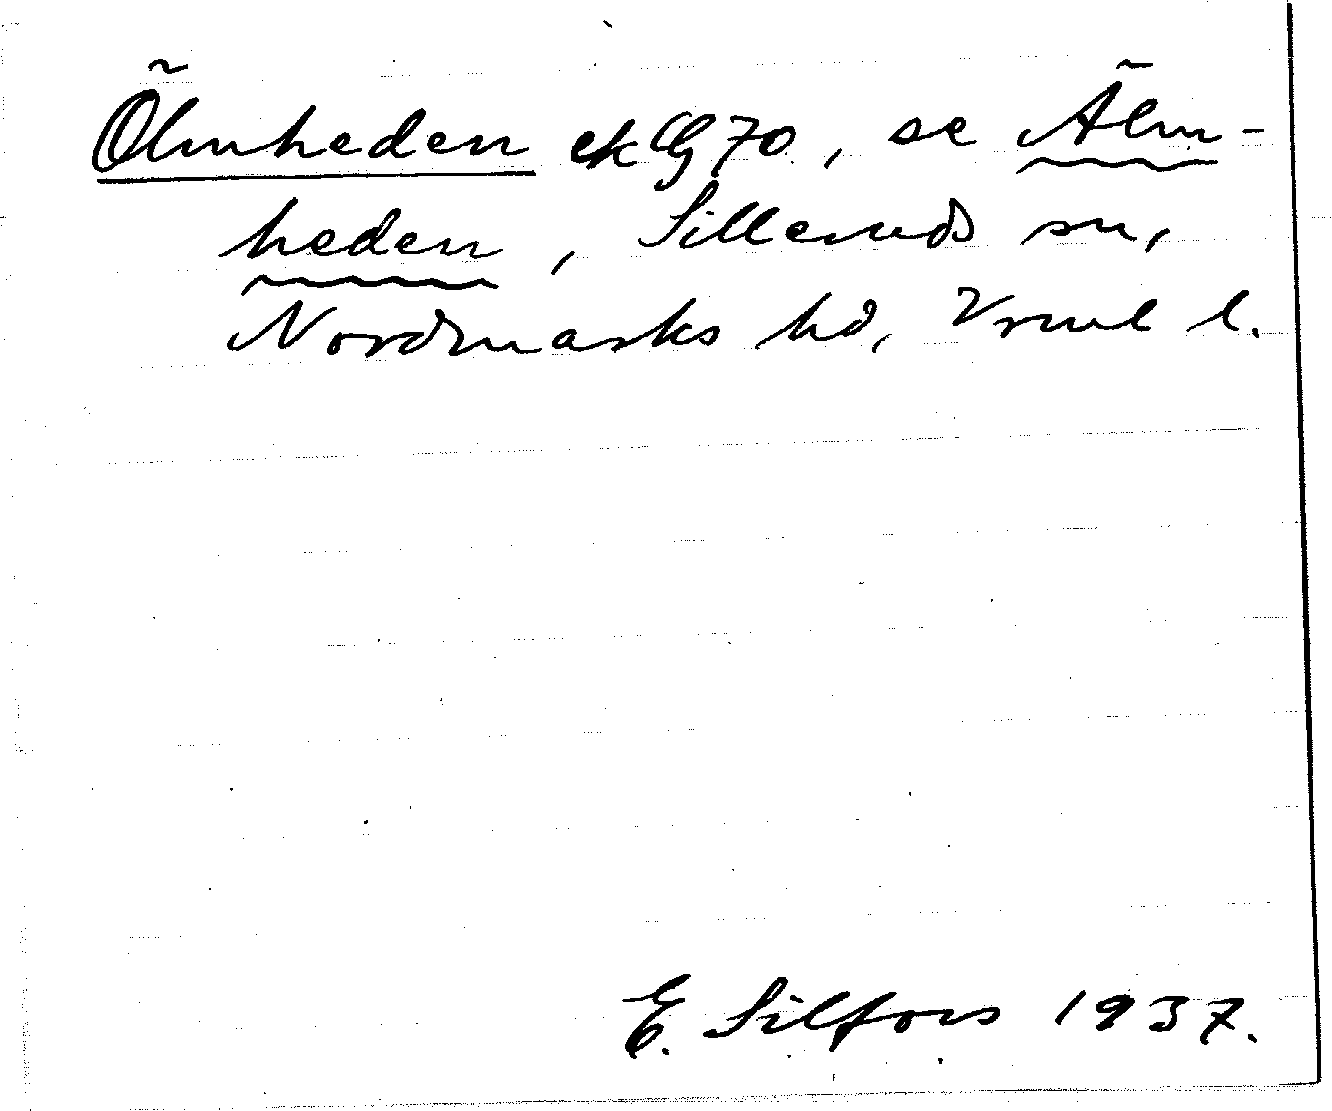 Ölmheden ek G 70, se Älm-
heden, Silleruds sn,
Nordmarks hd, Vrml l.
E. Silfors 1937.